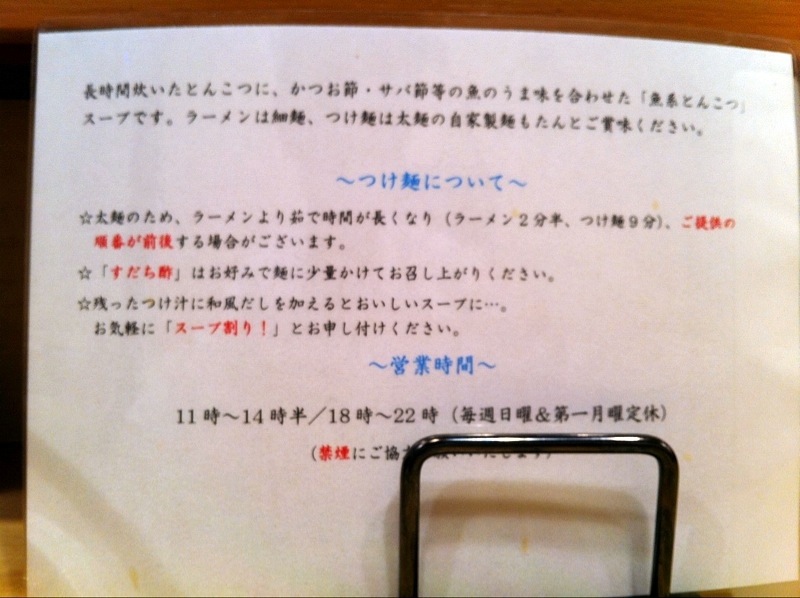 長時間炊いたとんこつに、かつお節・サバ節等の魚のうま味を合わせた「魚系とんこつ」
スープです。ラーメンは細麺、つけ麺は太麺の自家製麺もたんとご賞味ください。
～つけ麺について～
☆太麺のため、ラーメンより茹で時間が長くなり（ラーメン２分半、つけ麺９分）、ご提供の
順番が前後する場合がございます。
☆「すだち酢」はお好みで麺に少量かけてお召し上がりください。
☆残ったつけ汁に和風だしを加えるとおいしいスープに…。
お気軽に「スープ割り！」とお申し付けください。
～営業時間～
11時～14時半／18時～22時（毎週日曜＆第一月曜定休）
（禁煙にご協